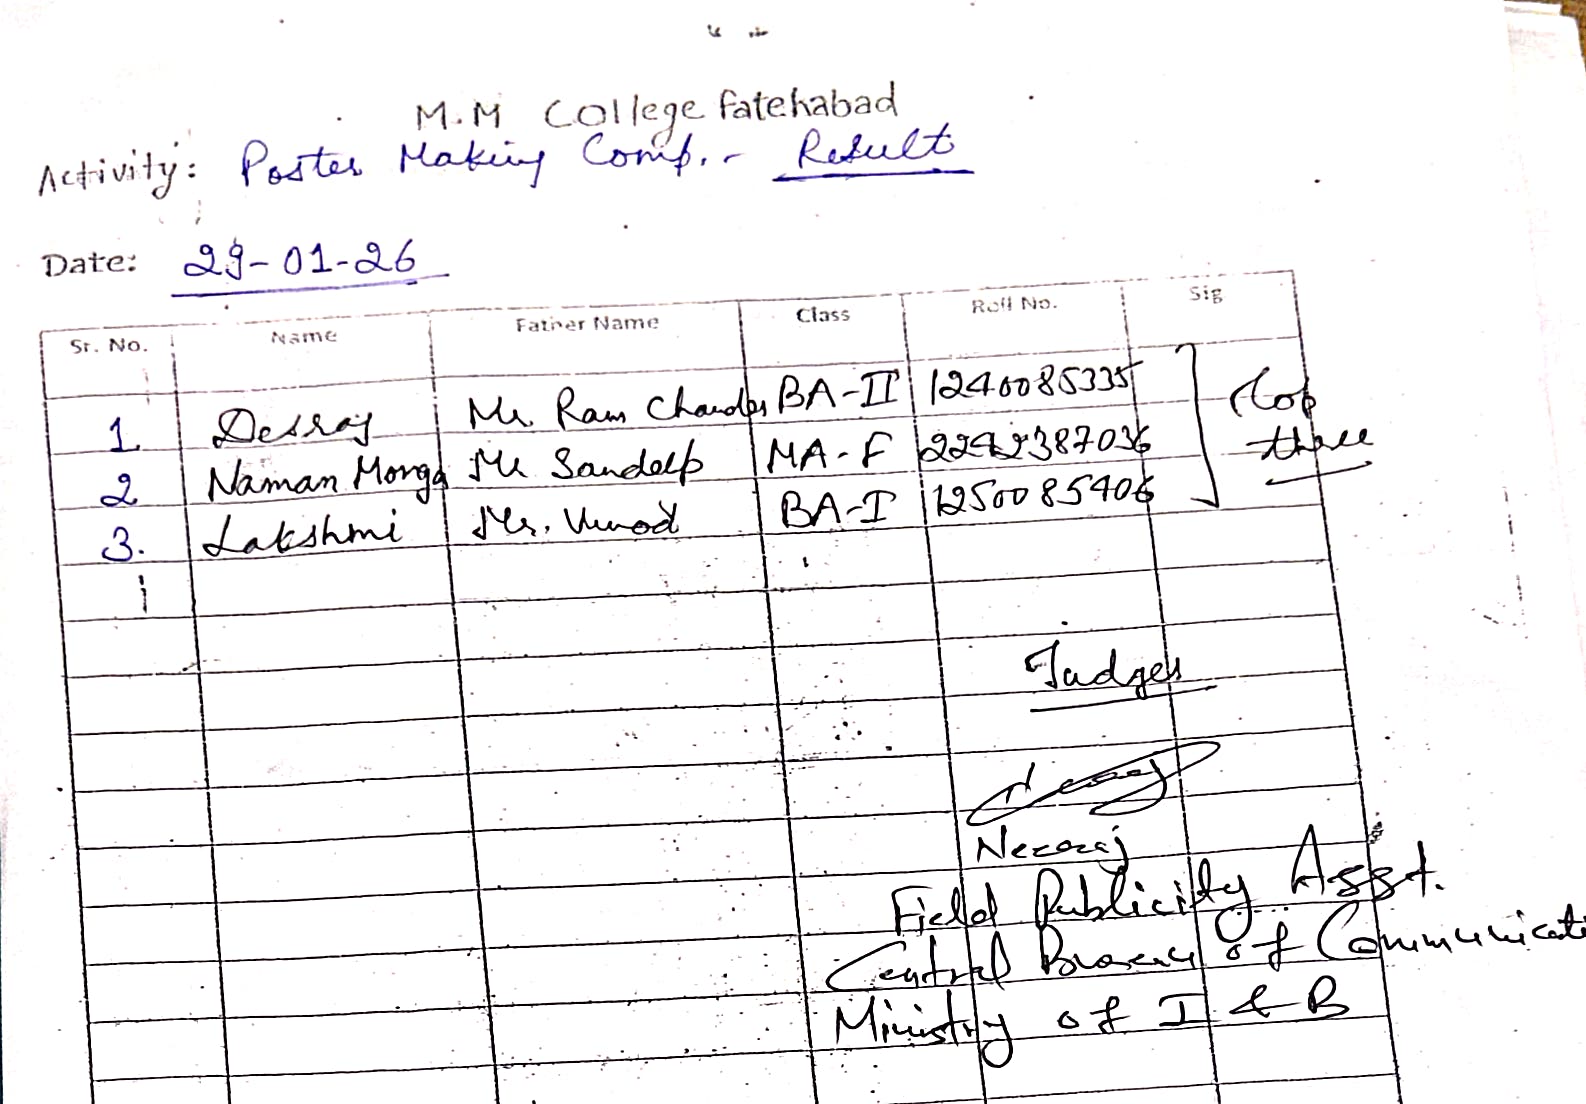 M.M College Fatehabad
Activity: Poster Making Comp. - Result
Date: 29-01-26
Sr. No. Name Father Name Class Roll No. Sig
1 Desraj Mr. Ram Chander BA-II 1240085335
2 Naman Monga Mr Sandeep MA-F 2242387036
3. Lakshmi Mr. Vinod BA-I 1250085406
top
three
Judges
Neeraj
Field Publicity Asst.
Central Bureau of Communicati
Ministry of I & B